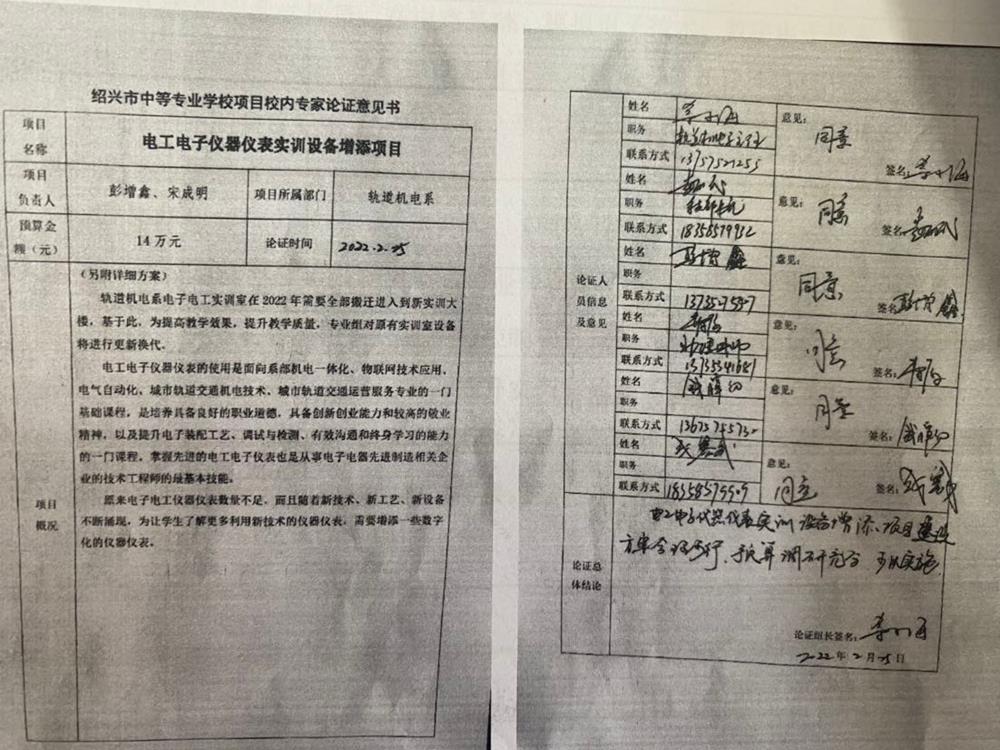 绍兴市中等专业学校项目校内专家论证意见书
项目
名称
电工电子仪器仪表实训设备增添项目
项目
负责人
彭增鑫、宋成明
项目所属部门
轨道机电系
预算金
额（元）
14万元
论证时间
2022.2.25
项目
概况
（另附详细方案）
轨道机电系电子电工实训室在2022年需要全部搬迁进入到新实训大
楼，基于此，为提高教学效果，提升教学质量，专业组对原有实训室设备
将进行更新换代。
电工电子仪器仪表的使用是面向系部机电一体化、物联网技术应用、
电气自动化，城市轨道交通机电技术、城市轨道交通运营服务专业的一门
基础课程，是培养具备良好的职业道德，具备创新创业能力和较高的敬业
精神，以及提升电子装配工艺、调试与检测、有效沟通和终身学习的能力
的一门课程。掌握先进的电工电子仪表也是从事电子电器先进制造相关企
业的技术工程师的最基本技能。
原来电子电工仪器仪表数量不足，而且随着新技术、新工艺、新设备
不断涌现，为让学生了解更多利用新技术的仪器仪表，需要增添一些数字
化的仪器仪表。
论证人
员信息
及意见
姓名
意见：
同意
职务
联系方式
13757521255
签名：
姓名
意见：
同意
职务
联系方式
签名：
姓名
彭增鑫
意见：
同意
职务
联系方式
签名：彭增鑫
姓名
意见：
同意
职务
联系方式
签名：
姓名
意见：
同意
职务
联系方式
签名：
姓名
意见：
同意
职务
联系方式
签名：
论证总
体结论
电工电子仪器仪表实训设备增添项目建设
方案合理可行、预算调研充分 予以实施
论证组长签名：
2022年2月25日